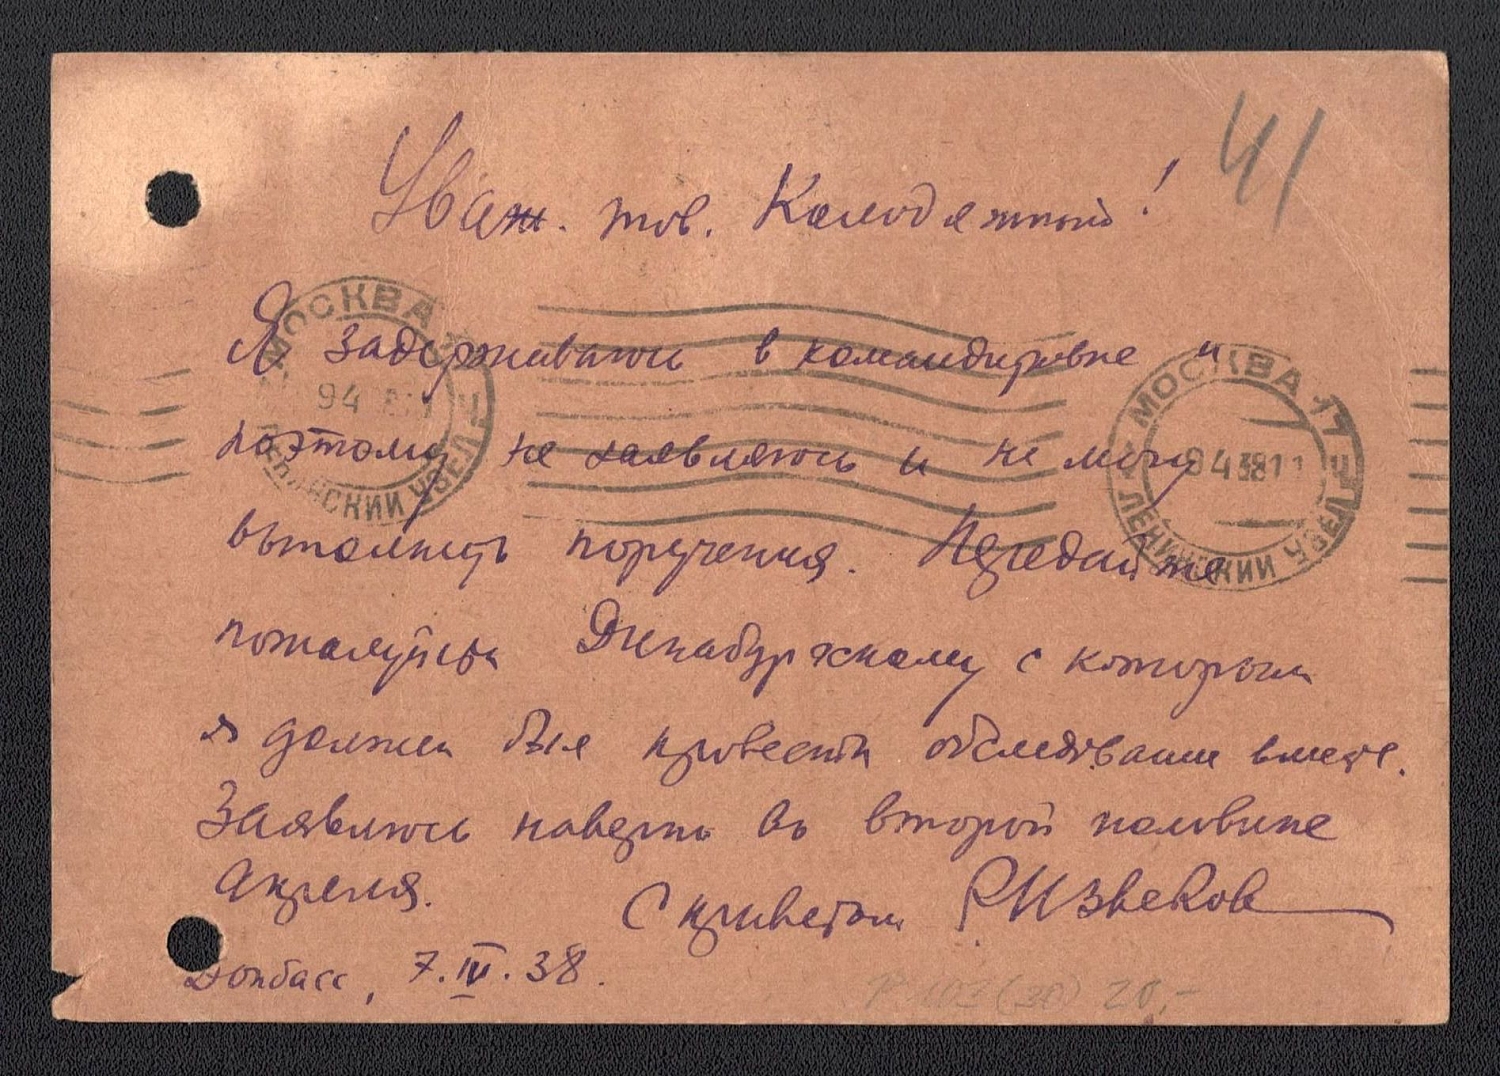 41
Уваж. тов. Колодяжный!
Я задерживаюсь в командировке и
поэтому не заявляюсь и не могу
выполнить поручения. Передайте
пожалуйста Динабургскому с которым
я должен был провести обследование вместе.
Заявлюсь наверно во второй половине
апреля.
С приветом Р Извеков
Донбасс, 7.IV.38.
МОСКВА
94
УЗЕЛ
МОСКВА 17
9 4 38 11
ЛЕНИНСКИЙ УЗЕЛ
20,-